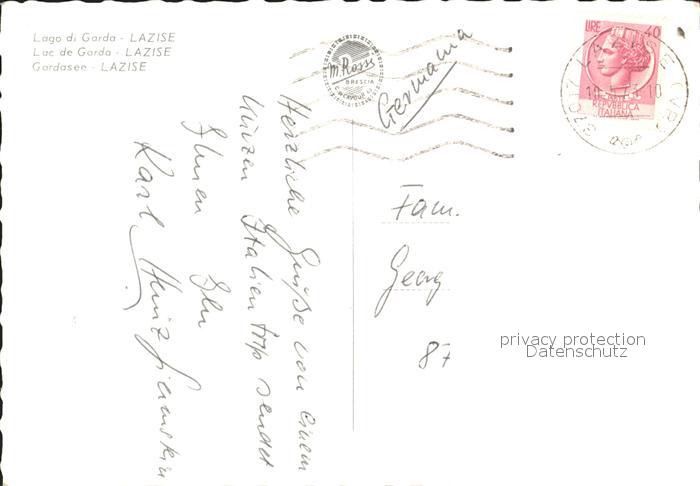 Lago di Garda - LAZISE
Lac de Garda - LAZISE
Gardasee - LAZISE
m. Rossi
BRESCIA
LIRE 40
REPVBBLICA
ITALIANA
Germania
Herzliche Grüße von einem
kurzen Italien trip sendet
Ihnen Ihr
Karl Heinz
Fam.
Georg
87
privacy protection
Datenschutz